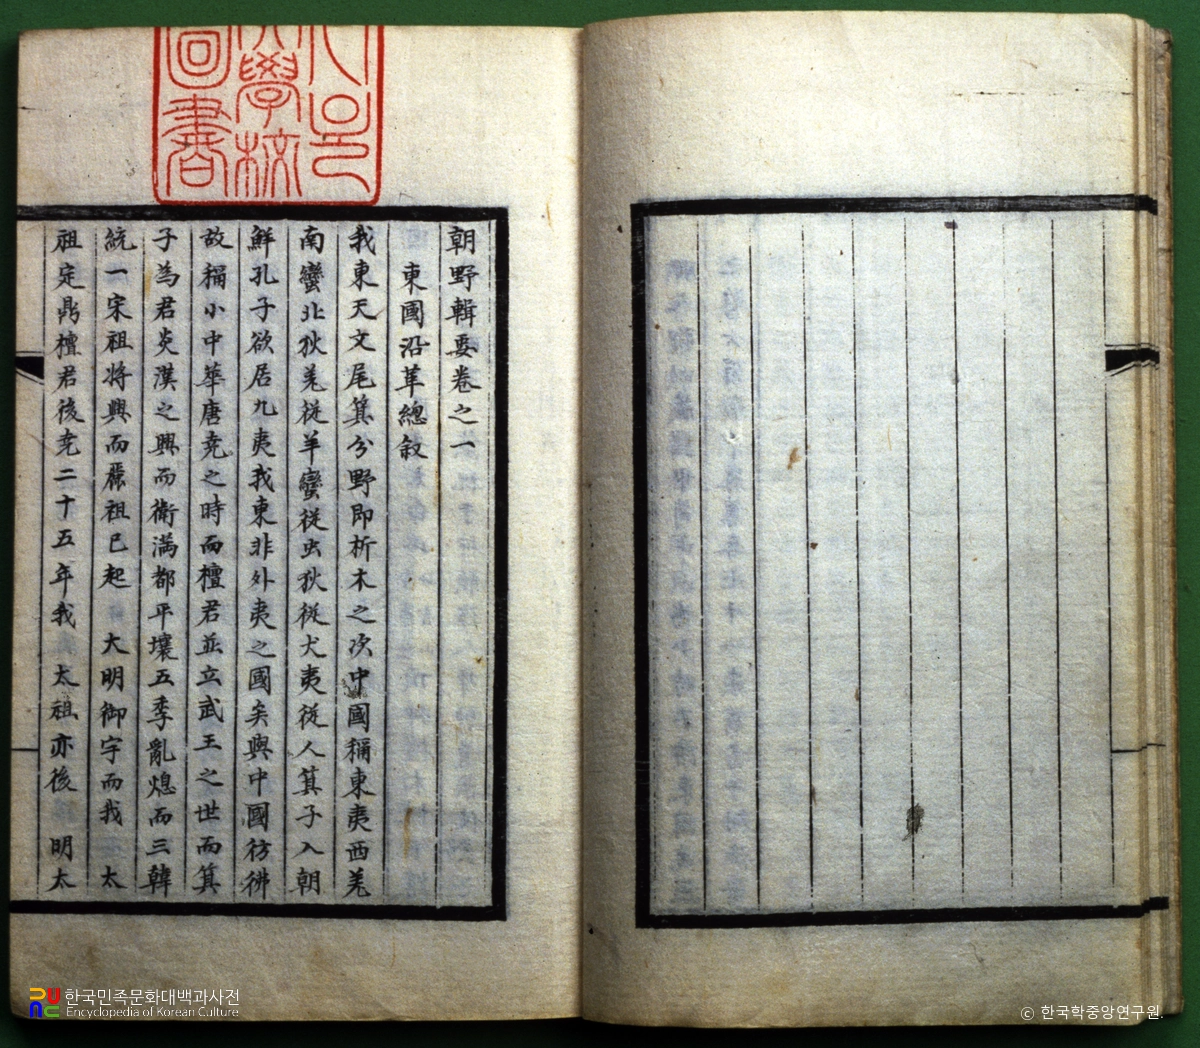 朝野輯要卷之一
東國沿革總叙
我東天文尾箕分野即析木之次中國稱東夷西羌
南蠻北狄羌從羊蠻從虫狄從犬夷從人箕子入朝
鮮孔子欲居九夷我東非外夷之國矣與中國彷彿
故稱小中華唐堯之時而檀君並立武王之世而箕
子為君炎漢之興而衛滿都平壤五季亂熄而三韓
統一宋祖將興而麗祖已起 大明御宇而我 太
祖定鼎檀君後堯二十五年我 太祖亦後 明太
邑
學校
圖書
한국민족문화대백과사전
Encyclopedia of Korean Culture
ⓒ 한국학중앙연구원.